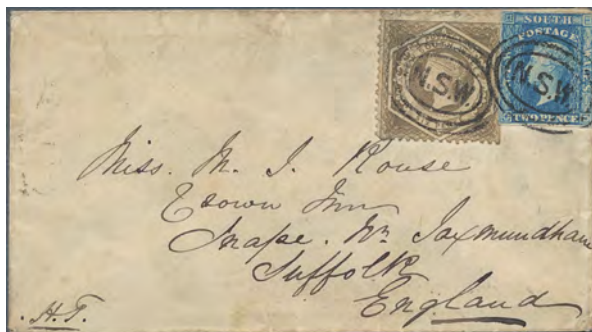 SOUTH
POSTAGE
TWO PENCE
N.S.W.
N.S.W.
Miss. M. J. Rouse
Crown Inn
Snape. Nr. Saxmundham
Suffolk
England
H.T.